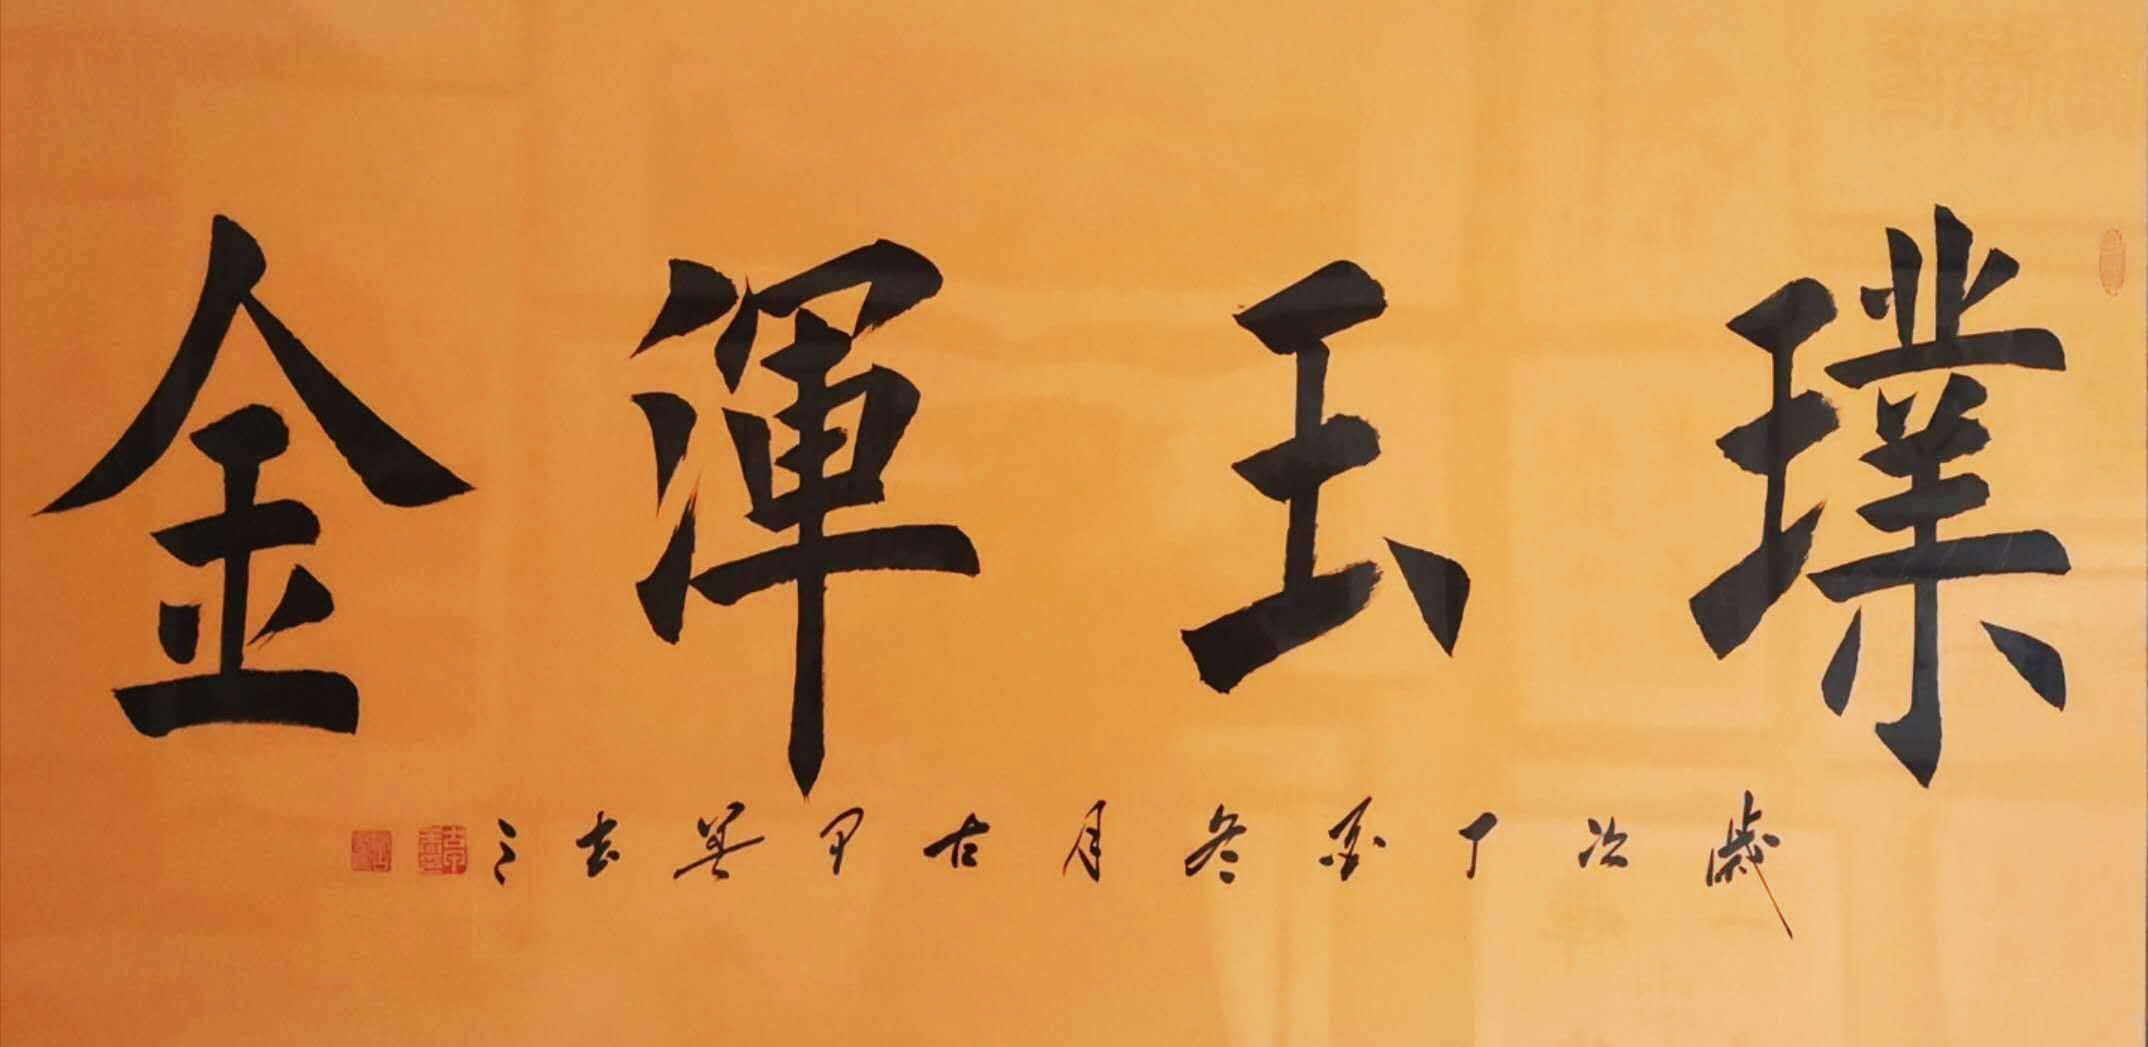 璞玉渾金
歲次丁酉冬月古甲吳玄之